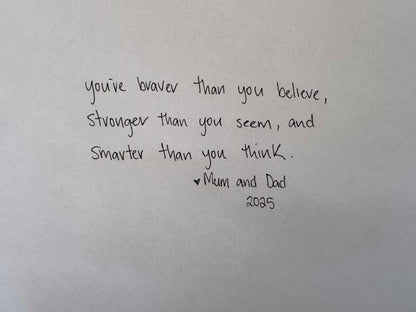 you're braver than you believe,
stronger than you seem, and
smarter than you think.
♥Mum and Dad
2025